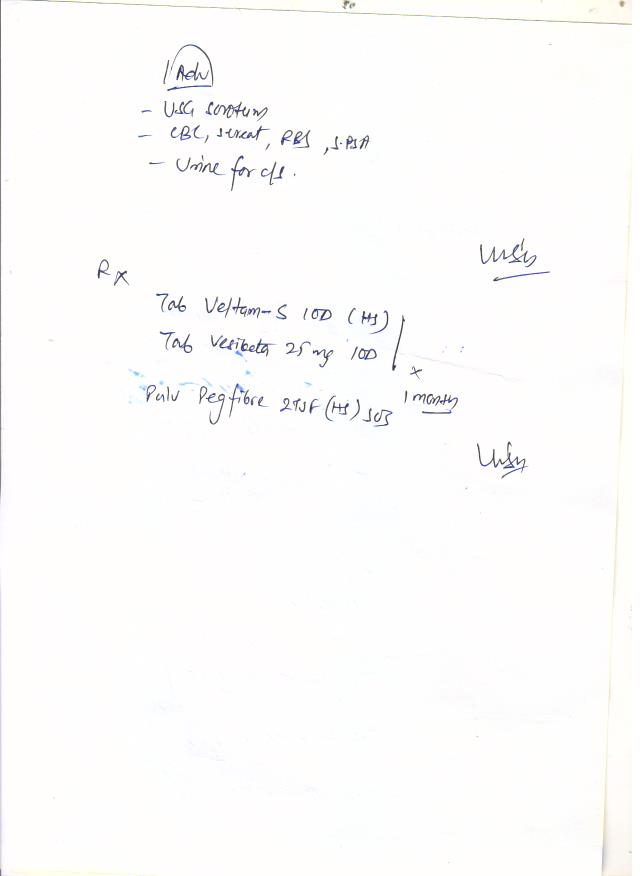 Adv
- USG scrotum
- CBC, s.creat, RBS, S.PSA
- Urine for c/s.
Rx
Tab Veltam-S 1OD (HS)
Tab Vesibeta 25 mg 1OD
x 1 month
Pulv Pegfibre 2TSF (HS) SOS